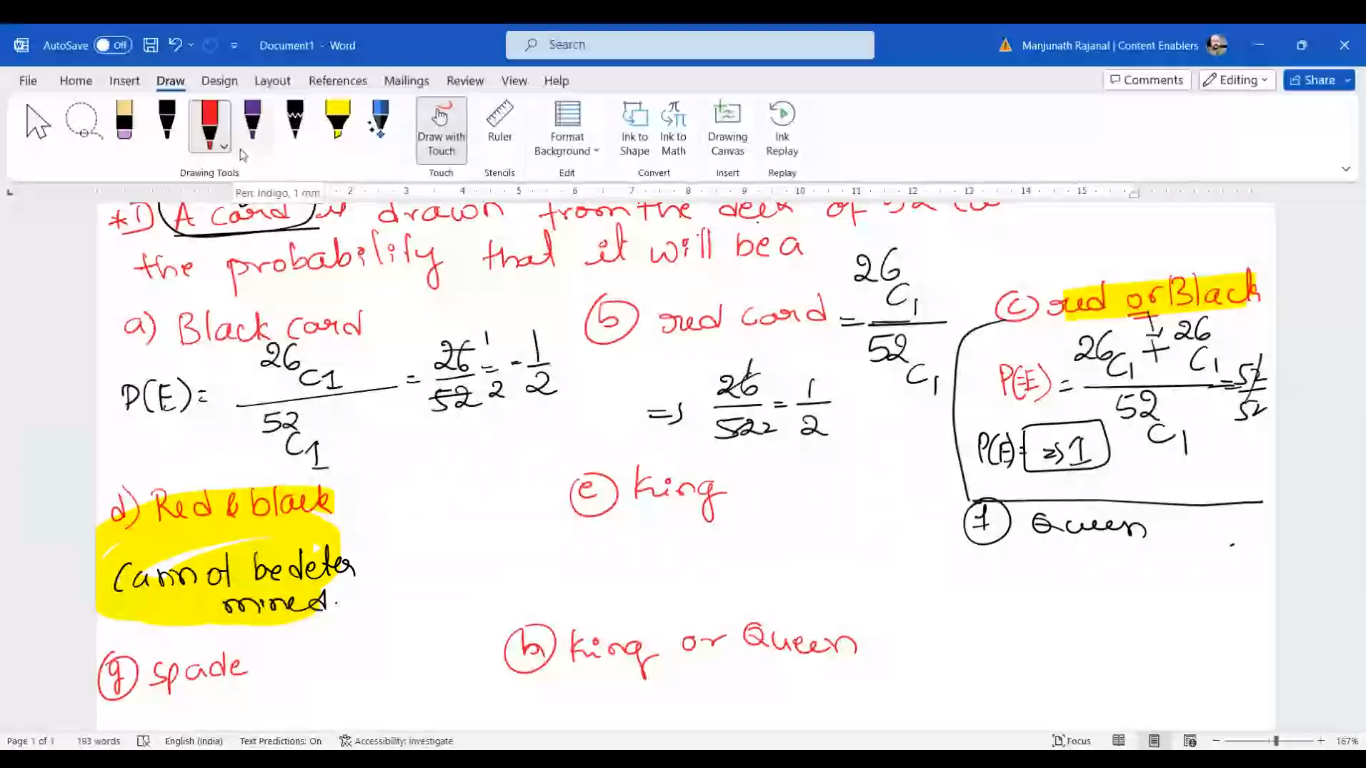 AutoSave Off Document1 - Word Search Manjunath Rajanal | Content Enablers
File Home Insert Draw Design Layout References Mailings Review View Help Comments Editing Share
Draw with Touch Ruler Format Background Ink to Shape Ink to Math Drawing Canvas Ink Replay
Drawing Tools Touch Stencils Edit Convert Insert Replay
Pen: Indigo, 1 mm
2 3 4 5 6 7 8 9 10 11 12 13 14 15
*1) A card is drawn from the deck of 52
the probability that it will be a
a) Black card
P(E) = 26C1 / 52C1 = 26/52 = 1/2 = 1/2
b) red card = 26C1 / 52C1
=> 26/52 2 = 1/2
c) red or Black
P(E) = 26C1 + 26C1 / 52C1 = 52/52
P(E) = => 1
d) Red & black
Cannot be deter
mined.
e) king
f) Queen
g) spade
h) king or Queen
Page 1 of 1 193 words English (India) Text Predictions: On Accessibility: Investigate Focus 167%